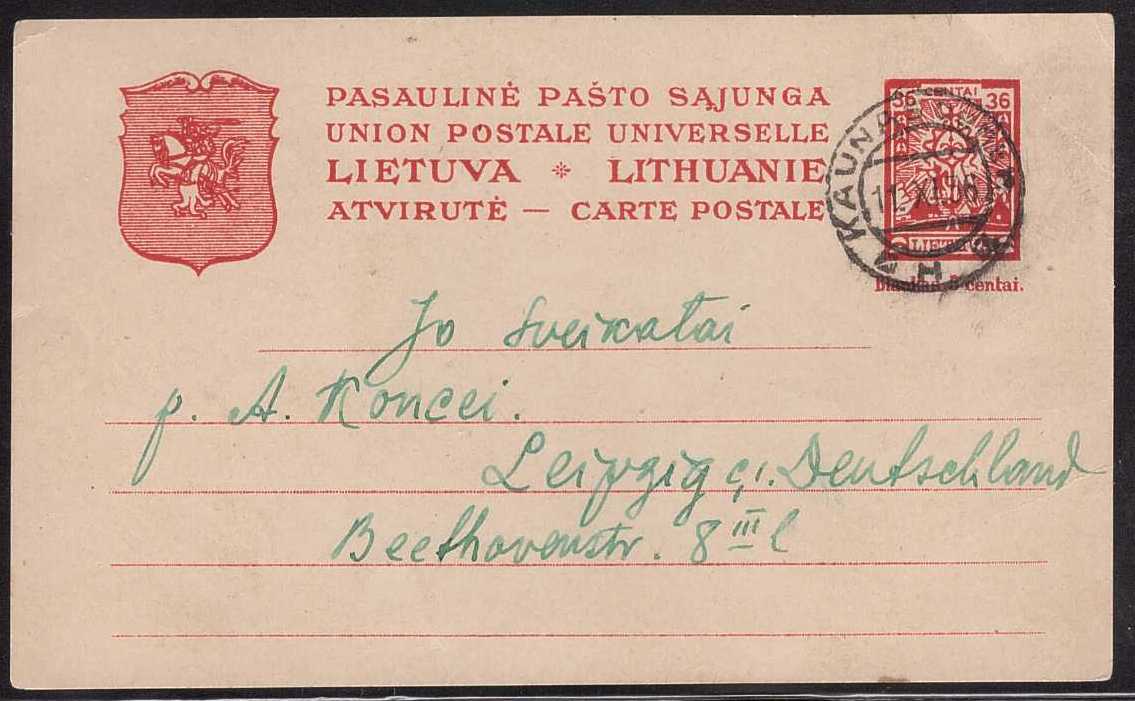 PASAULINĖ PAŠTO SĄJUNGA
UNION POSTALE UNIVERSELLE
LIETUVA * LITHUANIE
ATVIRUTĖ — CARTE POSTALE
36 CENTAI 36
KAUNAS
centai.
Jo Sveikatai
p. A. Koncei.
Leipzig c1. Deutschland
Beethovenstr. 8 III l